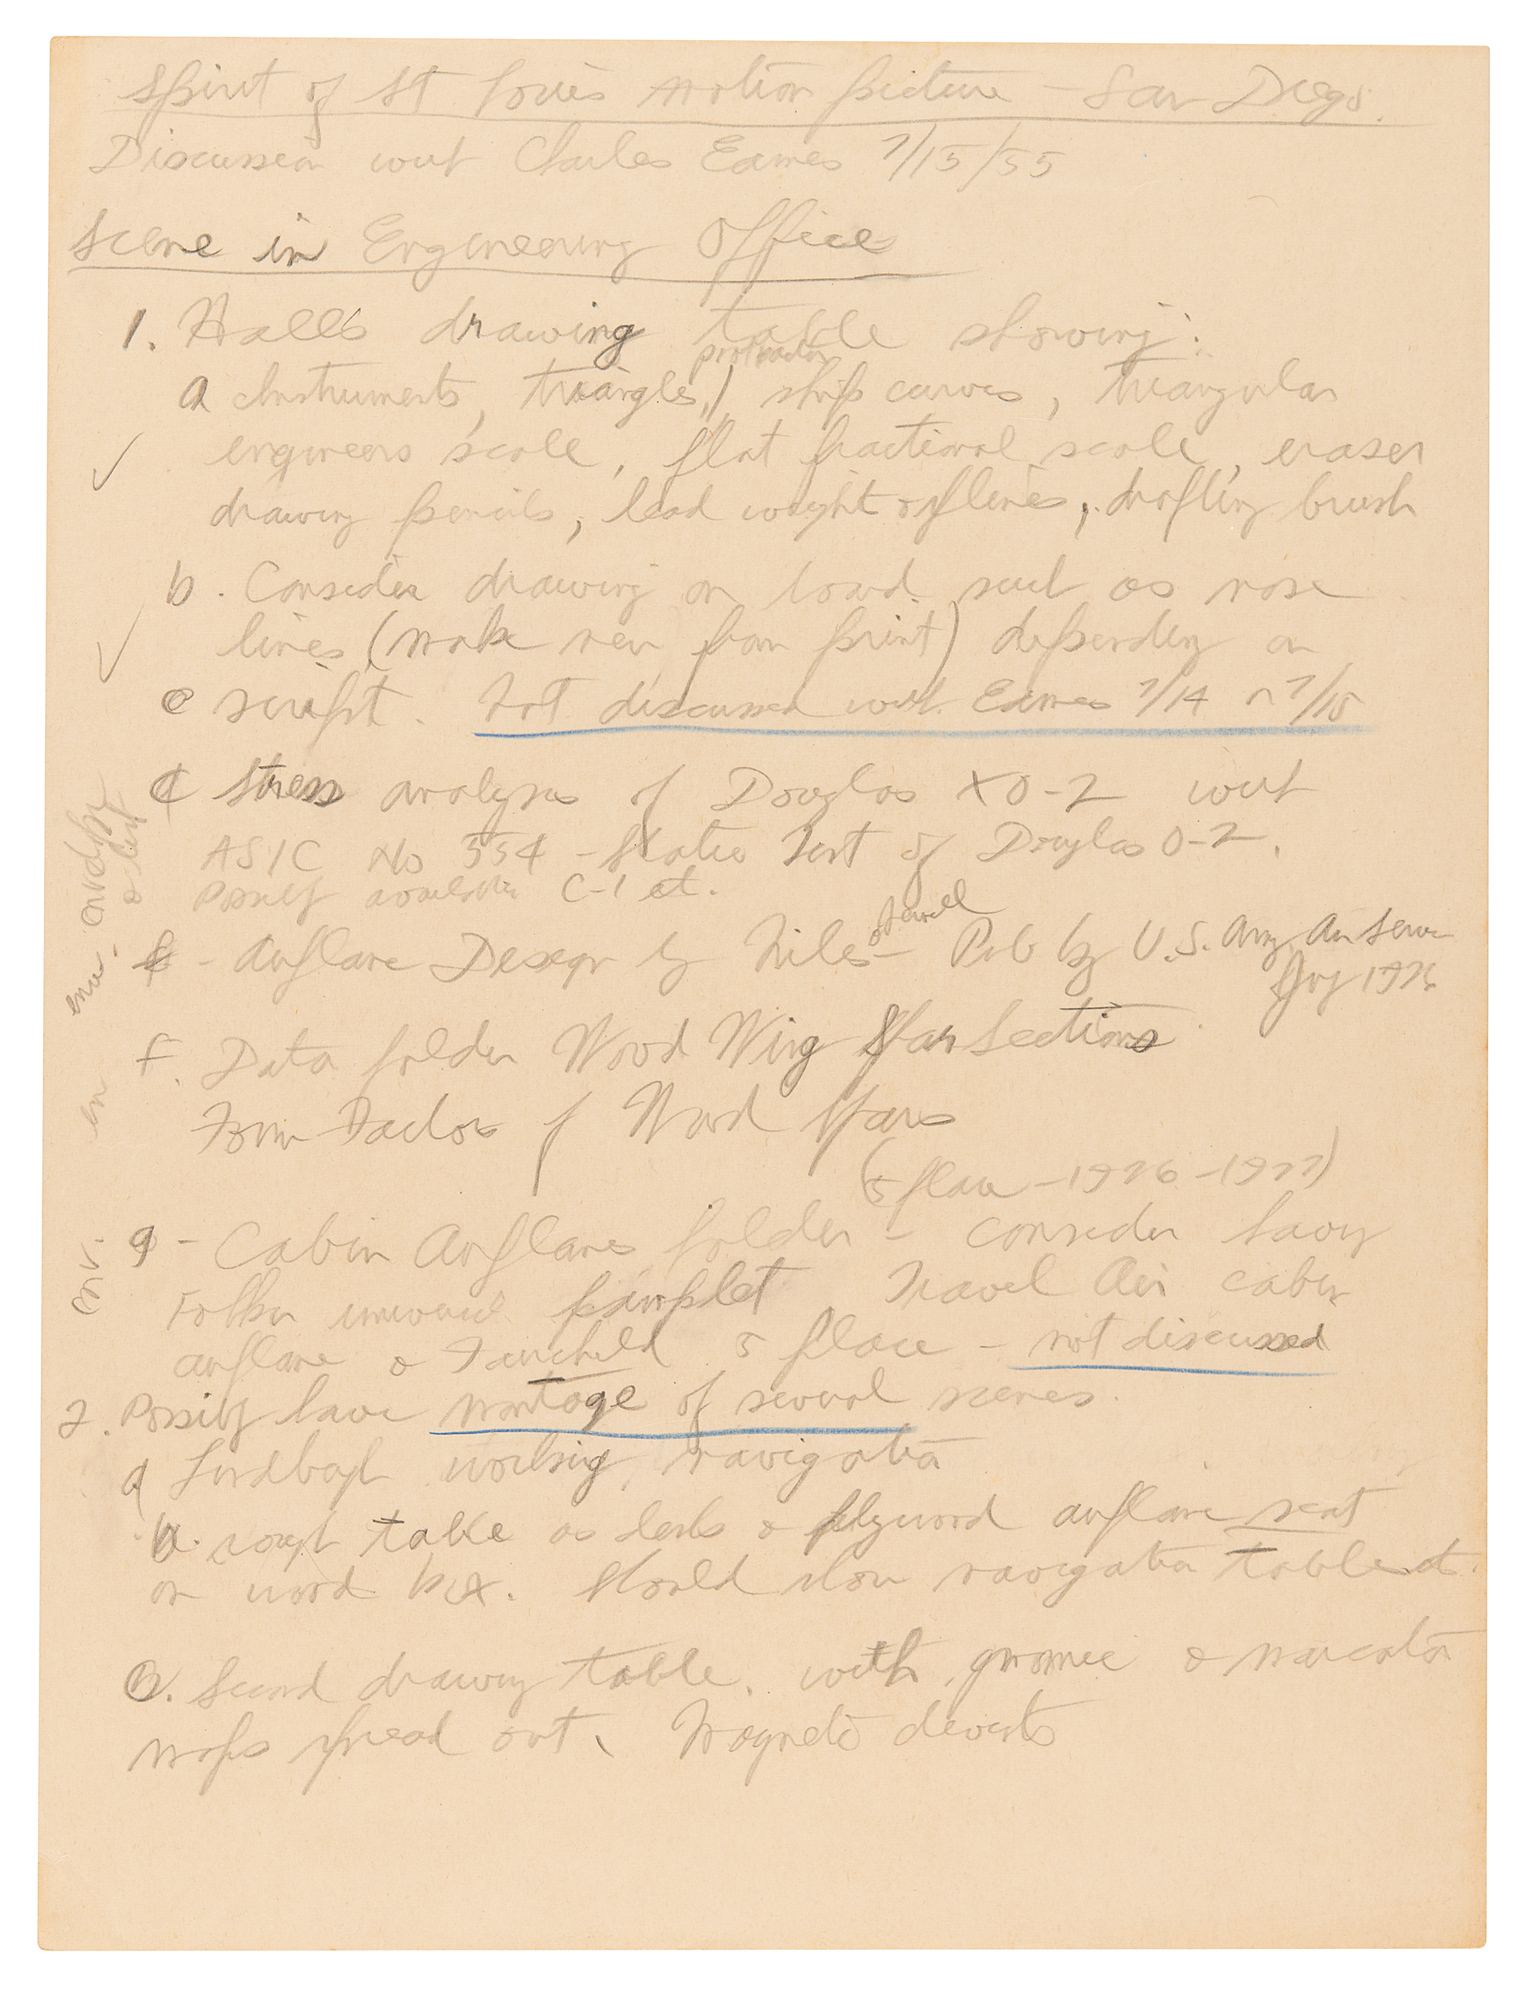 Spirit of St Louis Motion Picture - San Diego.
Discussion with Charles Eames 7/15/55
Scene in Engineering Office
1. Halls drawing table showing:
protractor
a Instruments, triangles, / ship curves, triangular
engineers scale, flat fractional scale, eraser
drawing pencils, lead weight & splines, drafting brush
b. Consider drawing on board such as nose
lines (make new from print) depending on
c script. Not discussed with Eames 7/14 or 7/15
d Stress analysis of Douglas XO-2 with
ASIC No 554 - Static Test of Douglas O-2.
Possibly available C-1 et.
& Newell
e - Airplane Design by Niles - Pub by U.S. Army Air Service
1926
f. Data folder Wood Wing Spar Sections
Form Factors of Wood Spars
(5 place - 1926 - 1927)
g - Cabin Airplanes folder - Consider having
Fokker universal pamplet Travel Air cabin
airplane & Fairchild 5 place - not discussed
2. Possibly have montage of several scenes.
a Lindbergh working navigation
b. rough table as desk & plywood airplane seat
on wood box. Should show navigation table et.
Second drawing table. with gnomic & mercator
maps spread out. Magneto
env.